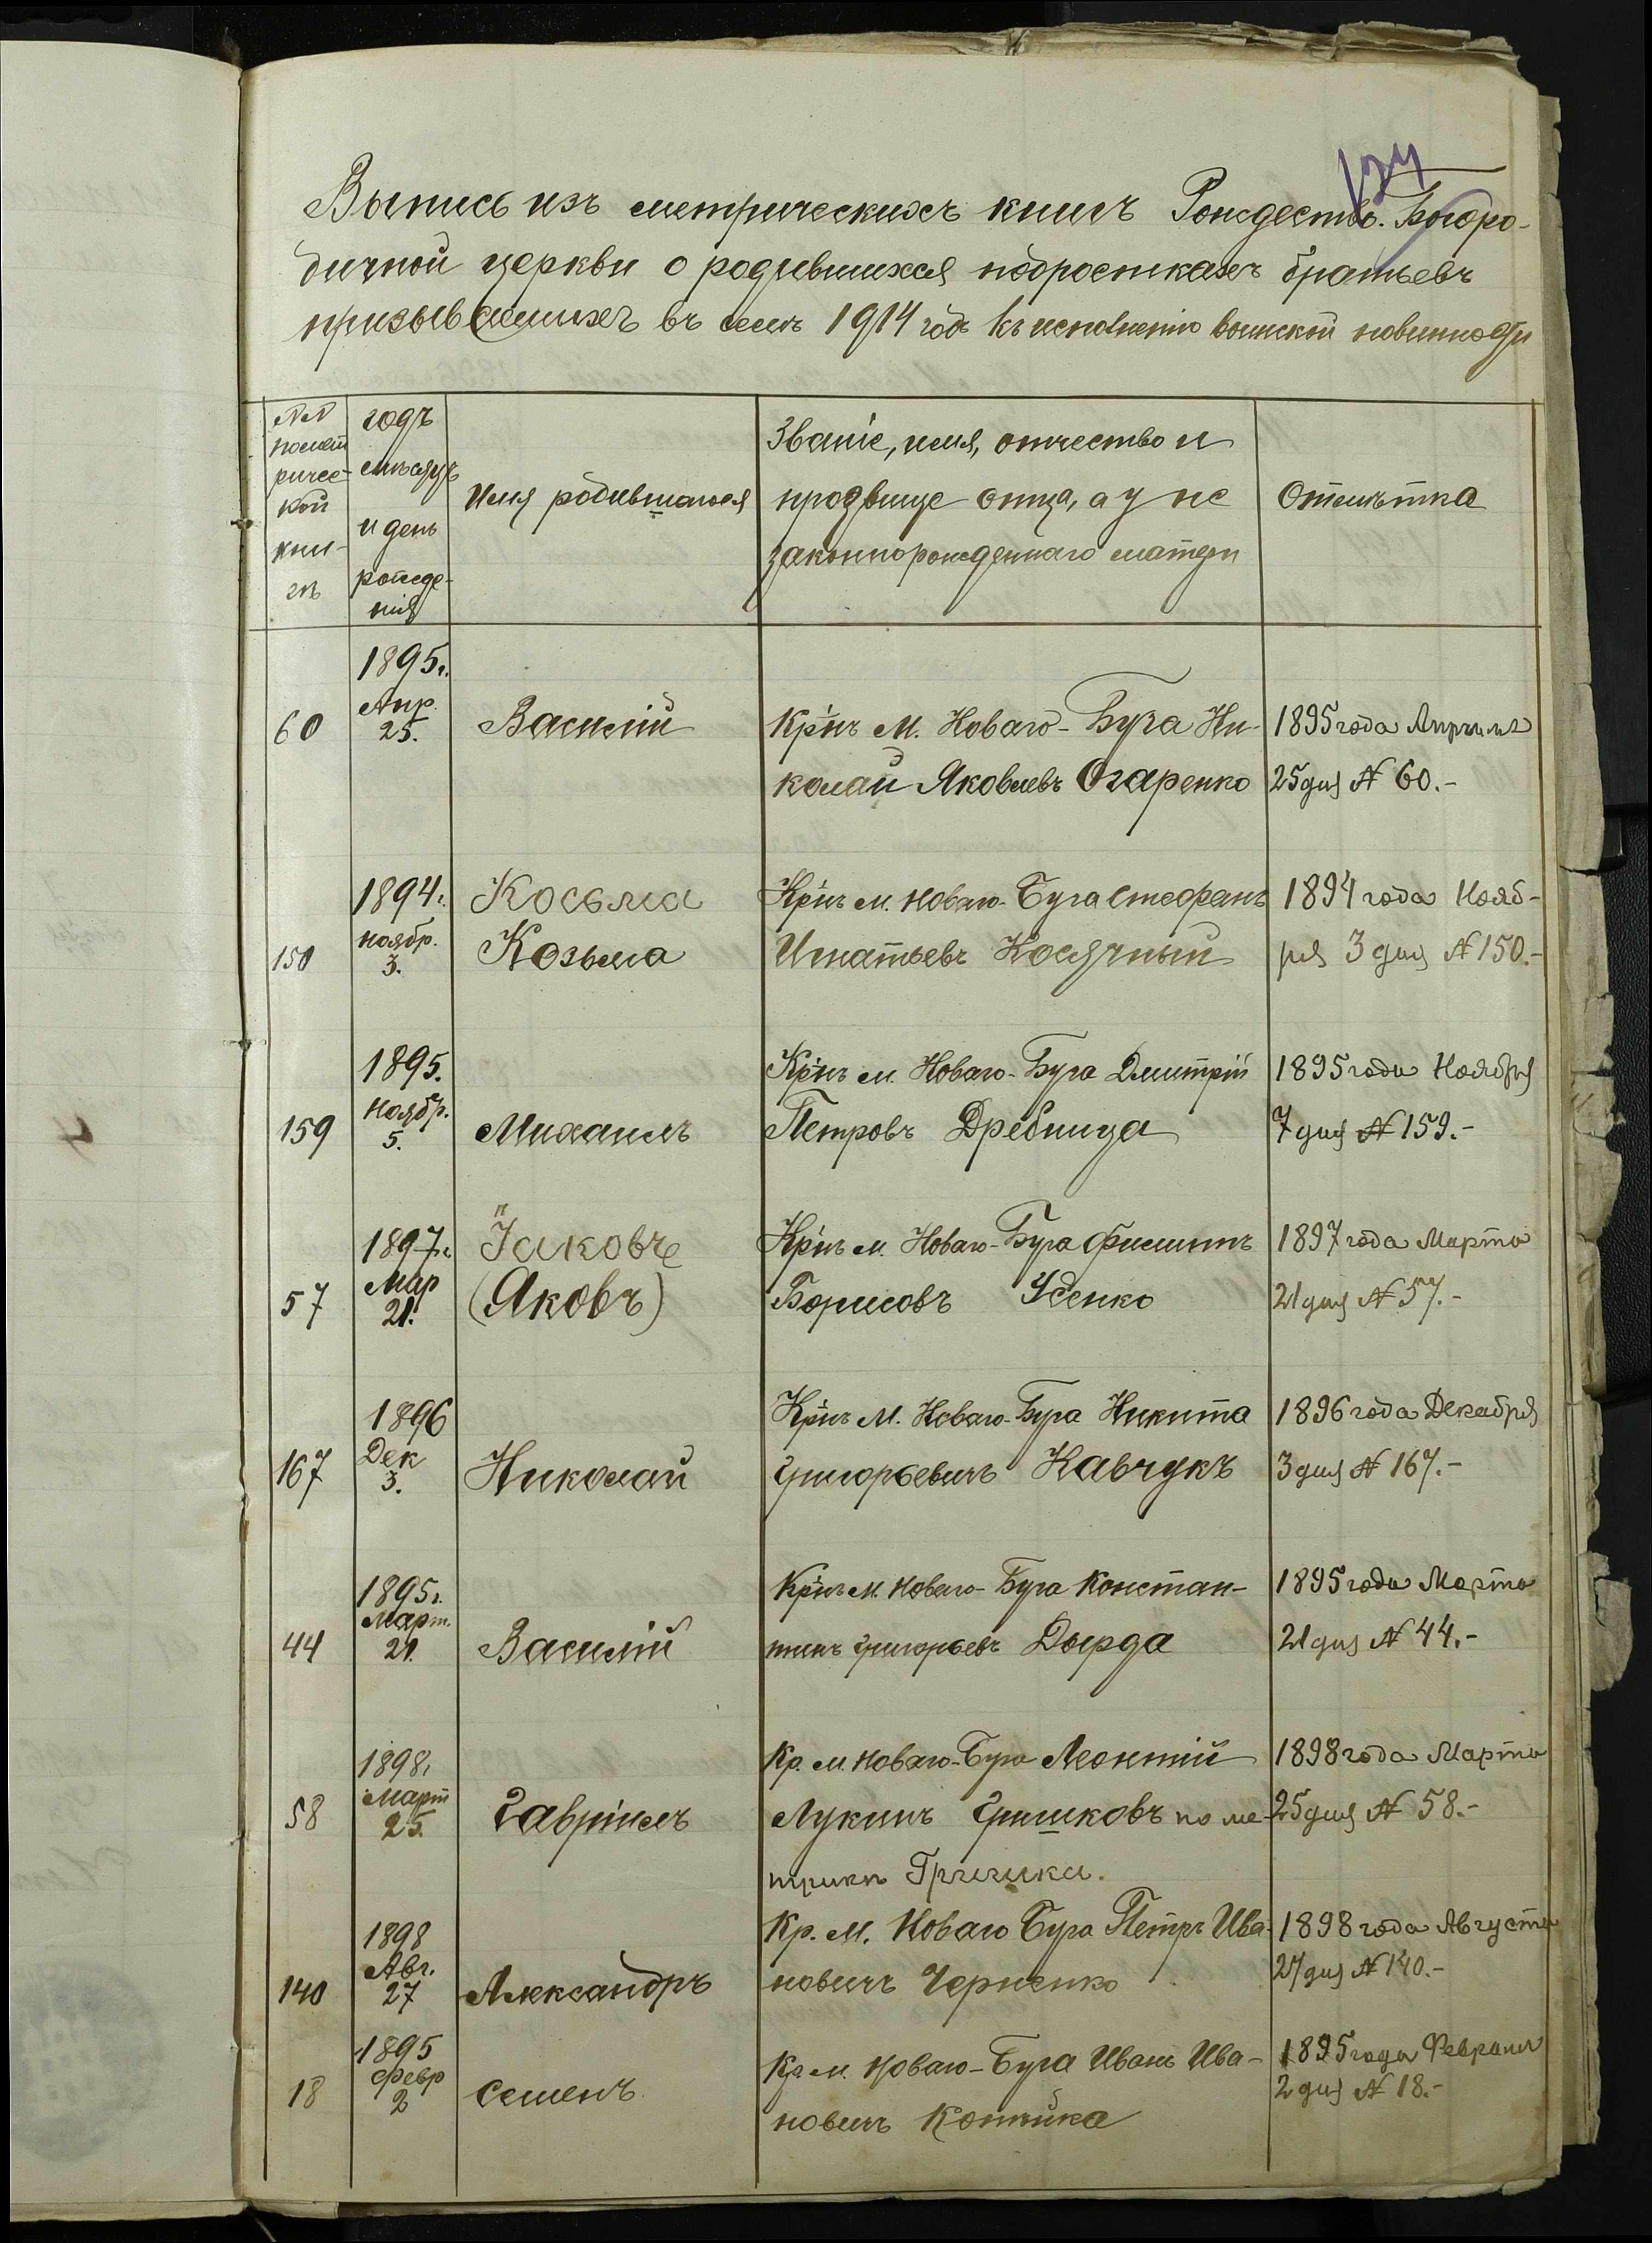 134
Выпись изъ метрическихъ книгъ Рождество-Богоро-
дичной церкви о родившихся подросткахъ братьевъ
призываемыхъ въ семъ 1914 годъ къ исполненію воинской повинности
№№ по метрической книгѣ
годъ мѣсяцъ и день рожденія
Имя родившагося
Званіе, имя, отчество и
прозвище отца, а у не
законнорожденнаго матери
Отмѣтка
60
1895г.
Апр.
25.
Василій
Кр-нъ м. Новаго-Буга Ни-
колай Яковлевъ Огаренко
1895 года Апрѣля
25 дня № 60.-
150
1894г.
ноябр.
3.
Косьма
Козьма
Кр-нъ м. Новаго-Буга Стефанъ
Игнатьевъ Косячный
1894 года Нояб-
ря 3 дня № 150.-
159
1895.
Ноябр.
5.
Михаилъ
Кр-нъ м. Новаго-Буга Дмитрій
Петровъ Дребница
1895 года Ноября
7 дня № 159.-
57
1897г.
Мар
21.
Іаковъ
(Яковъ)
Кр-нъ м. Новаго-Буга Филиппъ
Борисовъ Усенко
1897 года Марта
21 дня № 57.-
167
1896
Дек
3.
Николай
Кр-нъ м. Новаго-Буга Никита
Григорьевичъ Кавчукъ
1896 года Декабря
3 дня № 167.-
44
1895г.
Март.
21.
Василій
Кр-нъ м. Новаго-Буга Констан-
тинъ Григорьевъ Дырда
1895 года Марта
21 дня № 44.-
58
1898г.
Март
25.
Гавріилъ
Кр. м. Новаго-Буга Леонтій
Лукинъ Гришковъ по ме-
трикѣ
1898 года Марта
25 дня № 58.-
140
1898
Авг.
27
Александръ
Кр. м. Новаго Буга Петръ Ива-
новичъ Черненко
1898 года Августа
27 дня № 140.-
18
1895
Февр
2
Семенъ
Кр. м. Новаго-Буга Иванъ Ива-
новичъ Копѣйка
1895 года Февраля
2 дня № 18.-